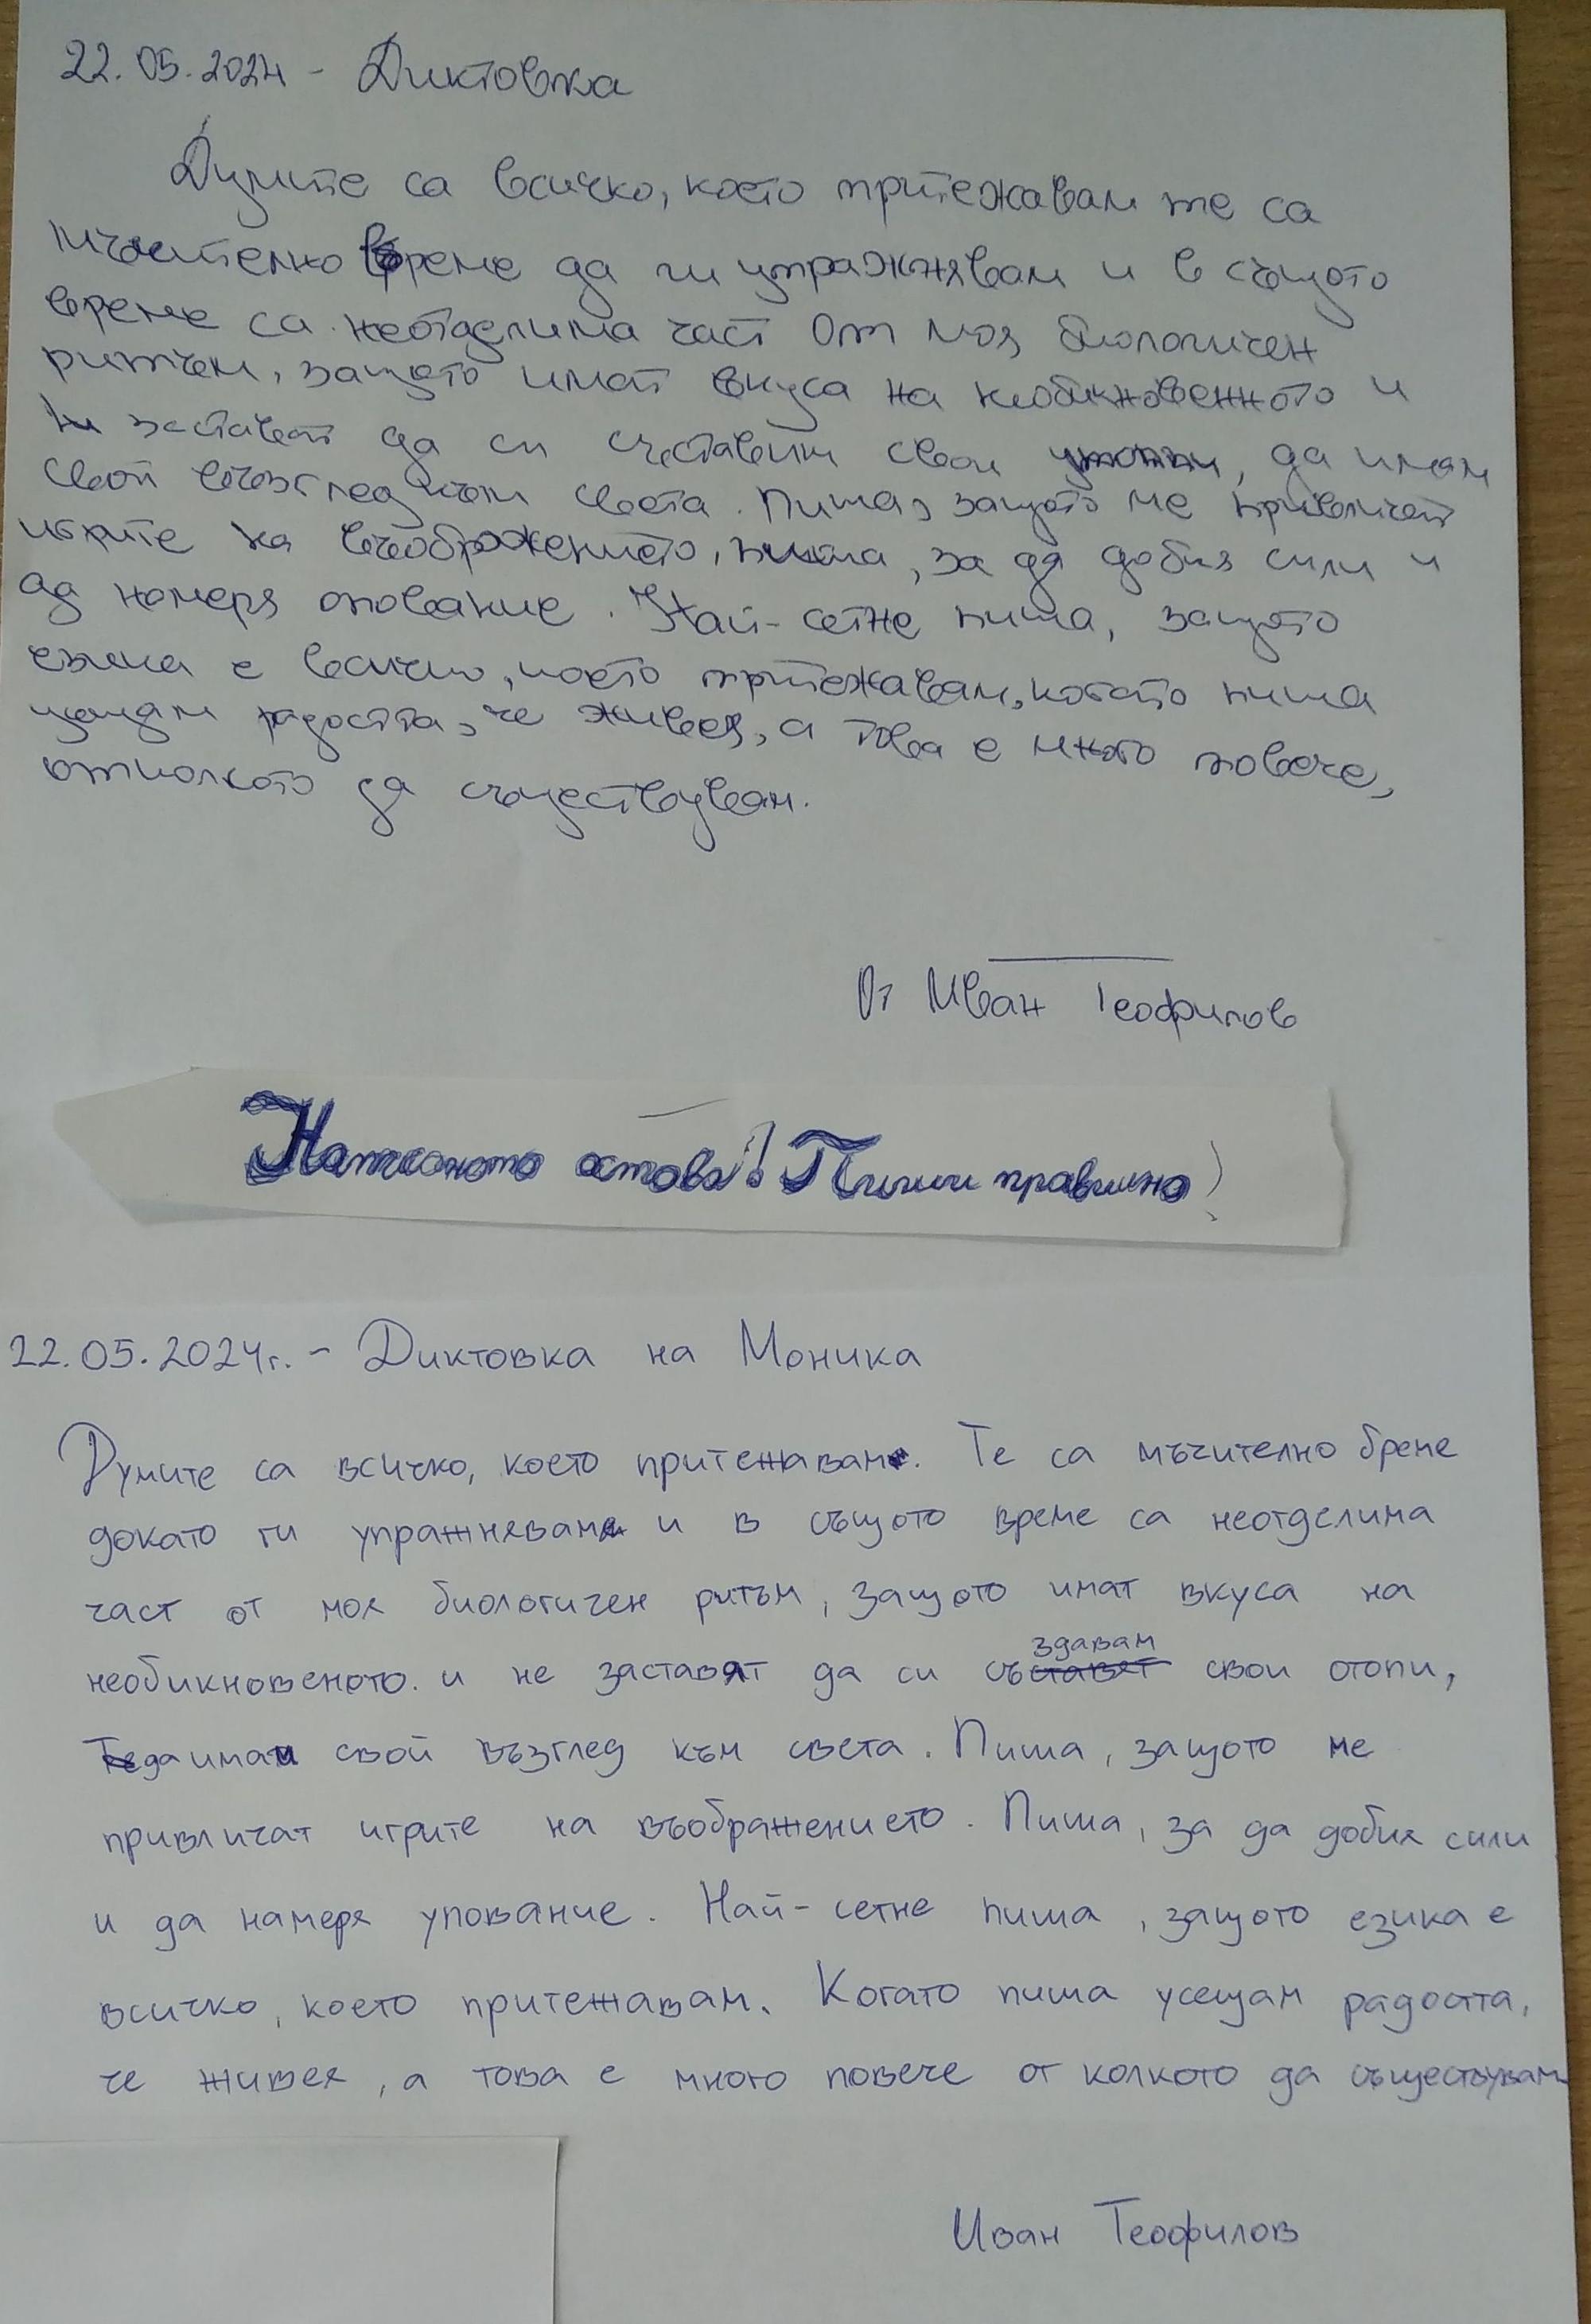 22.05.2024 - Диктовка
Думите са всичко, което притежавам те са
мъчително време да ги упражнявам и в същото
време са неотделима част от моя биологичен
ритъм, защото имат вкуса на необикновенното и
заставят да си съставим свои утопии, да имам
свой възглед към света. Пиша, защото ме привличат
игрите на въображението, пиша, за да добия сили и
да намеря опование. Най-сетне пиша, защото
езика е всичко, което притежавам, когато пиша
усещам радостта, че живея, а това е много повече,
отколкото да съществувам.
От Иван Теофилов
Написаното остава! Пиши правилно!
22.05.2024г. - Диктовка на Моника
Думите са всичко, което притежавам. Те са мъчително бреме
докато ги упражнявам и в същото време са неотделима
част от моя биологичен ритъм, защото имат вкуса на
необикновеното. и не заставят да си създавам свои отопи,
да имам свой възглед към света. Пиша, защото ме
привличат игрите на въображението. Пиша, за да добия сили
и да намеря упование. Най-сетне пиша, защото езика е
всичко, което притежавам. Когато пиша усещам радостта,
че живея, а това е много повече от колкото да съществувам
Иван Теофилов